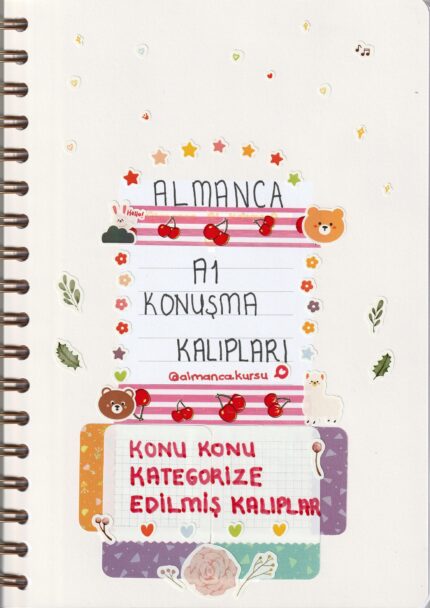 Hello!
ALMANCA
A1
KONUŞMA
KALIPLARI
@almanca.kursu
KONU KONU
KATEGORIZE
EDILMIŞ KALIPLAR